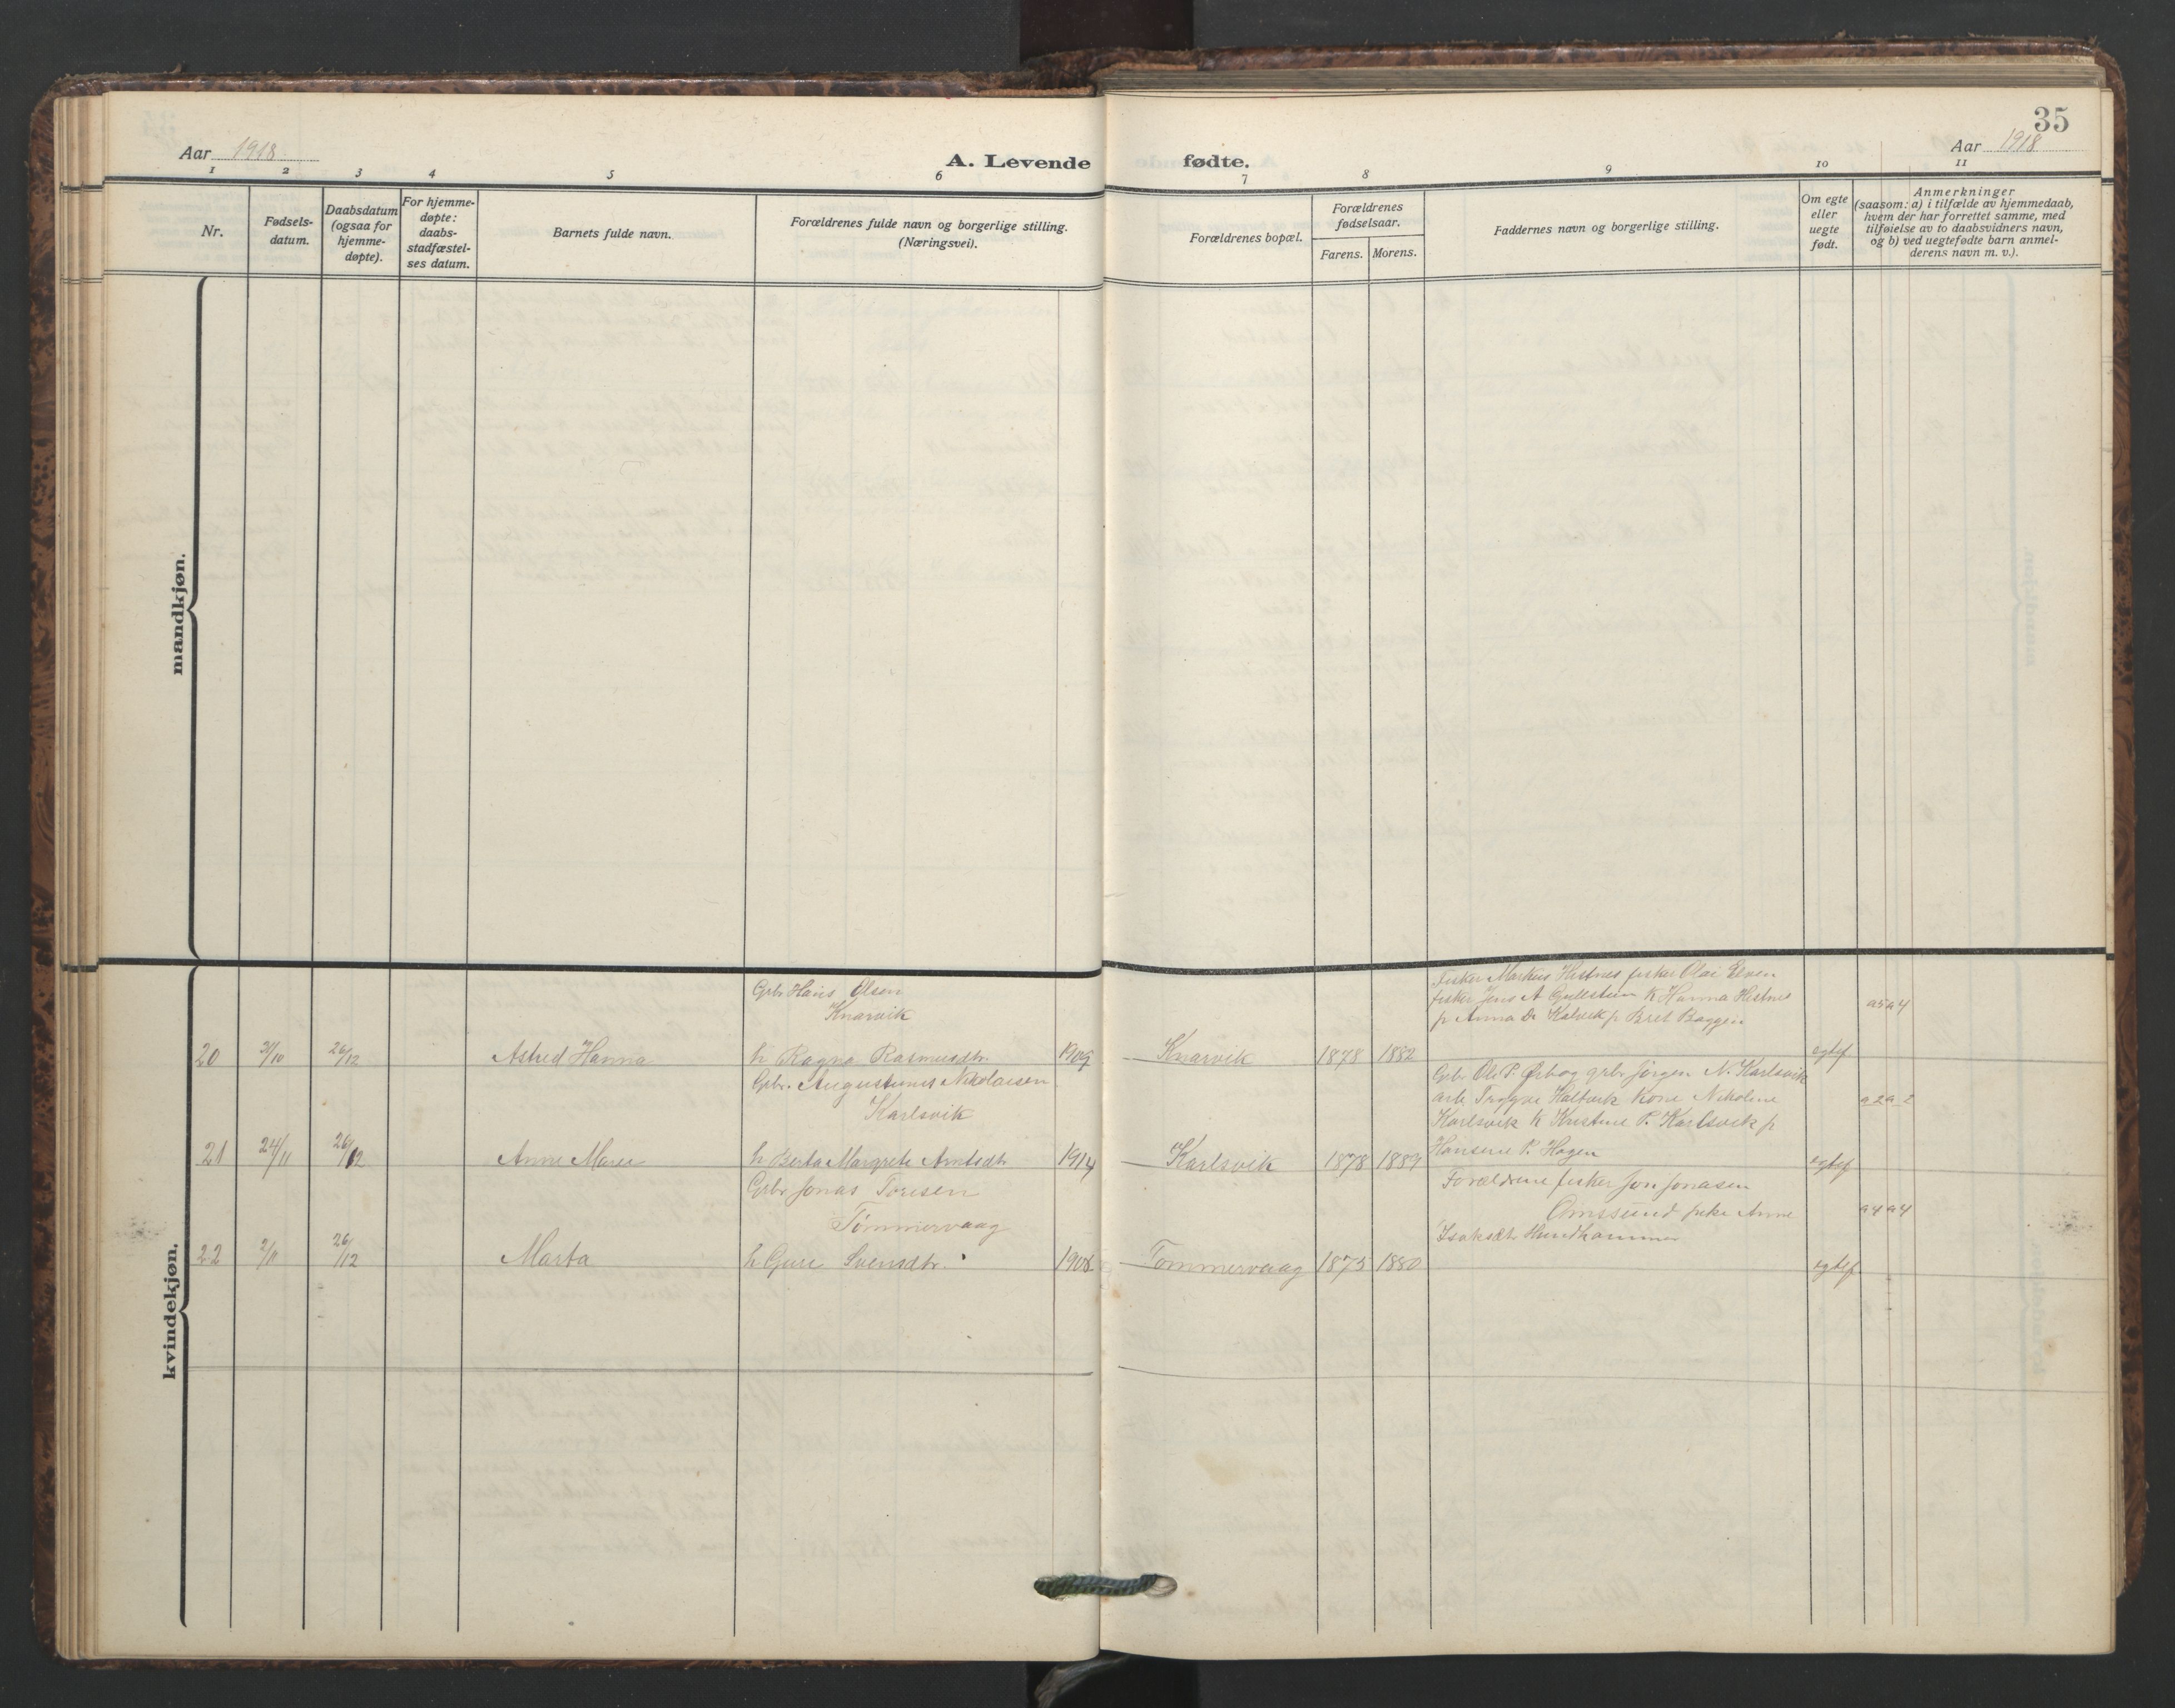 35
Aar 1918
A. Levende fødte.
Aar 1918
1 2 3 4 5 6 7 8 9 10 11
Nr.
Fødsels-
datum.
Daabsdatum
(ogsaa for
hjemme-
døpte).
For hjemme-
døpte:
daabs-
stadfæstel-
ses datum.
Barnets fulde navn.
Forældrenes fulde navn og borgerlige stilling.
(Næringsvei).
Forældrenes bopæl.
Forældrenes
fødselsaar.
Farens. Morens.
Faddernes navn og borgerlige stilling.
Om egte
eller
uegte
født.
Anmerkninger
(saasom: a) i tilfælde av hjemmedaab,
hvem der har forrettet samme, med
tilføielse av to daabsvidners navn,
og b) ved uegtefødte barn anmel-
derens navn m. v.).
mandkjøn.
kvindekjøn.
Gbr. Hans Olsen
Knarvik
20 31/10 26/12 Astrid Hanna h Ragna Rasmusdtr. 1909 Knarvik 1878 1882 egtef
Fisker Markus Hestnes fisker Olai Elven
fisker Jens A Gullstein K Hanna Hestnes
p Anna D. Kalvik p Bret Baggen
a5 a4
Gbr. Augustinus Nikolaisen
Karlsvik
21 24/11 26/12 Anne Marie h Berta Margrete Arntsdtr 1914 Karlsvik 1878 1889 egtef
Gbr Ole P. Ørbog gbr Jörgen N. Karlsvik
arb. Trygve Haltvik Kone Nikoline
Karlsvik K Kristine P. Karlsvik p
Hansine P. Hagen
a2 a2
Gbr Jonas Toresen
Tömmervaag
22 2/11 26/12 Marta h Guri Svensdtr. 1908 Tömmervaag 1875 1880 egtef
Forældrene fisker Jon Jonasen
Omssund pike Anne
Isaksdtr Hundhammer
a4 a4